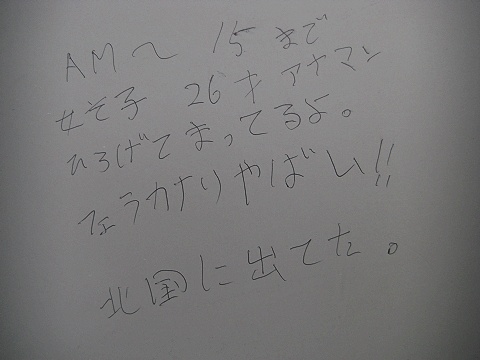 AM～15まで
女そ子 26才 アナマン
ひろげてまってるよ。
フェラカナリやばい!!
北国に出てた。